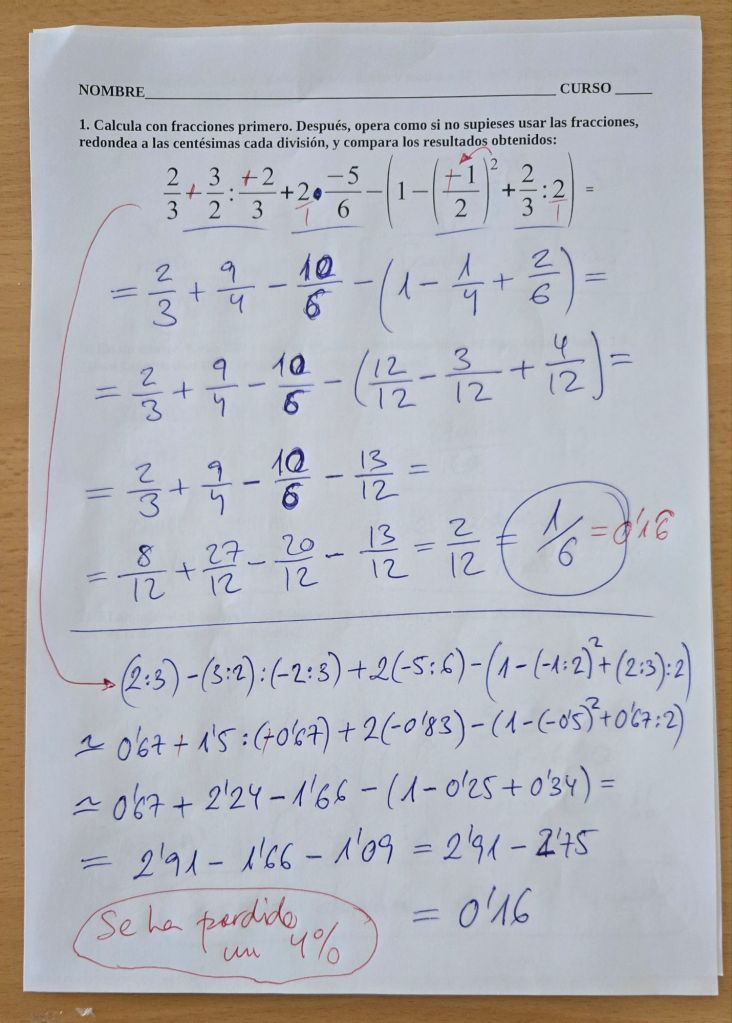 NOMBRE____ CURSO____
1. Calcula con fracciones primero. Después, opera como si no supieses usar las fracciones,
redondea a las centésimas cada división, y compara los resultados obtenidos:
2/3 + 3/2 : +2/3 + 2/1 • -5/6 - (1 - (+1/2)² + 2/3 : 2/1) =
= 2/3 + 9/4 - 10/6 - (1 - 1/4 + 2/6) =
= 2/3 + 9/4 - 10/6 - (12/12 - 3/12 + 4/12) =
= 2/3 + 9/4 - 10/6 - 13/12 =
= 8/12 + 27/12 - 20/12 - 13/12 = 2/12 = 1/6 = 0'16
(2:3) - (3:2) : (-2:3) + 2(-5:6) - (1 - (-1:2)² + (2:3):2)
≃ 0'67 + 1'5 : (+0'67) + 2(-0'83) - (1 - (-0'5)² + 0'67:2)
≃ 0'67 + 2'24 - 1'66 - (1 - 0'25 + 0'34) =
= 2'91 - 1'66 - 1'09 = 2'91 - 2'75
= 0'16
Se ha perdido
un 4%